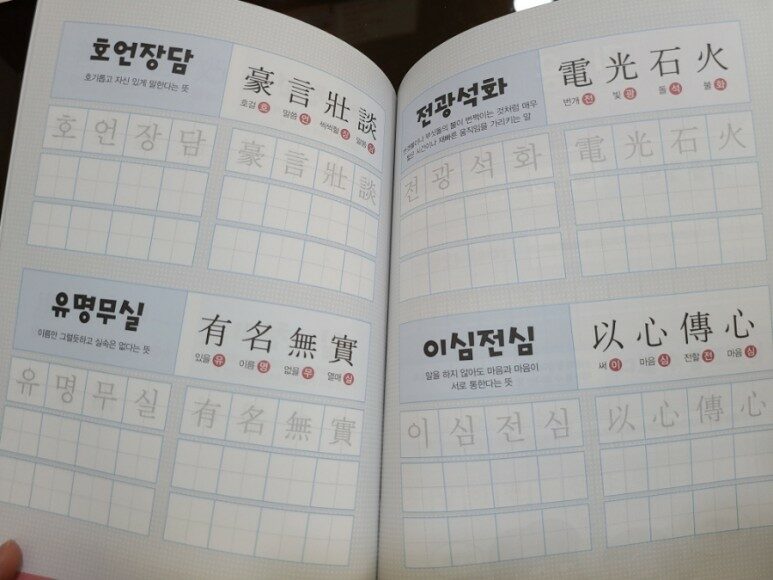 호언장담
호기롭고 자신 있게 말한다는 뜻
豪言壯談
호걸 호 말씀 언 씩씩할 장 말씀 담
호언장담
豪言壯談
유명무실
이름만 그럴듯하고 실속은 없다는 뜻
有名無實
있을 유 이름 명 없을 무 열매 실
유명무실
有名無實
전광석화
번갯불이나 부싯돌의 불이 번쩍이는 것처럼 매우
짧은 시간이나 재빠른 움직임을 가리키는 말
電光石火
번개 전 빛 광 돌 석 불 화
전광석화
電光石火
이심전심
말을 하지 않아도 마음과 마음이
서로 통한다는 뜻
以心傳心
써 이 마음 심 전할 전 마음 심
이심전심
以心傳心